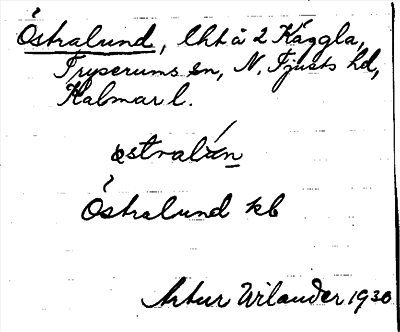 Östralund, lht å 2 Käggla,
Tryserums sn, N. Tjusts hd,
Kalmar l.
östralún
Östralund kb
Artur Wilander 1930